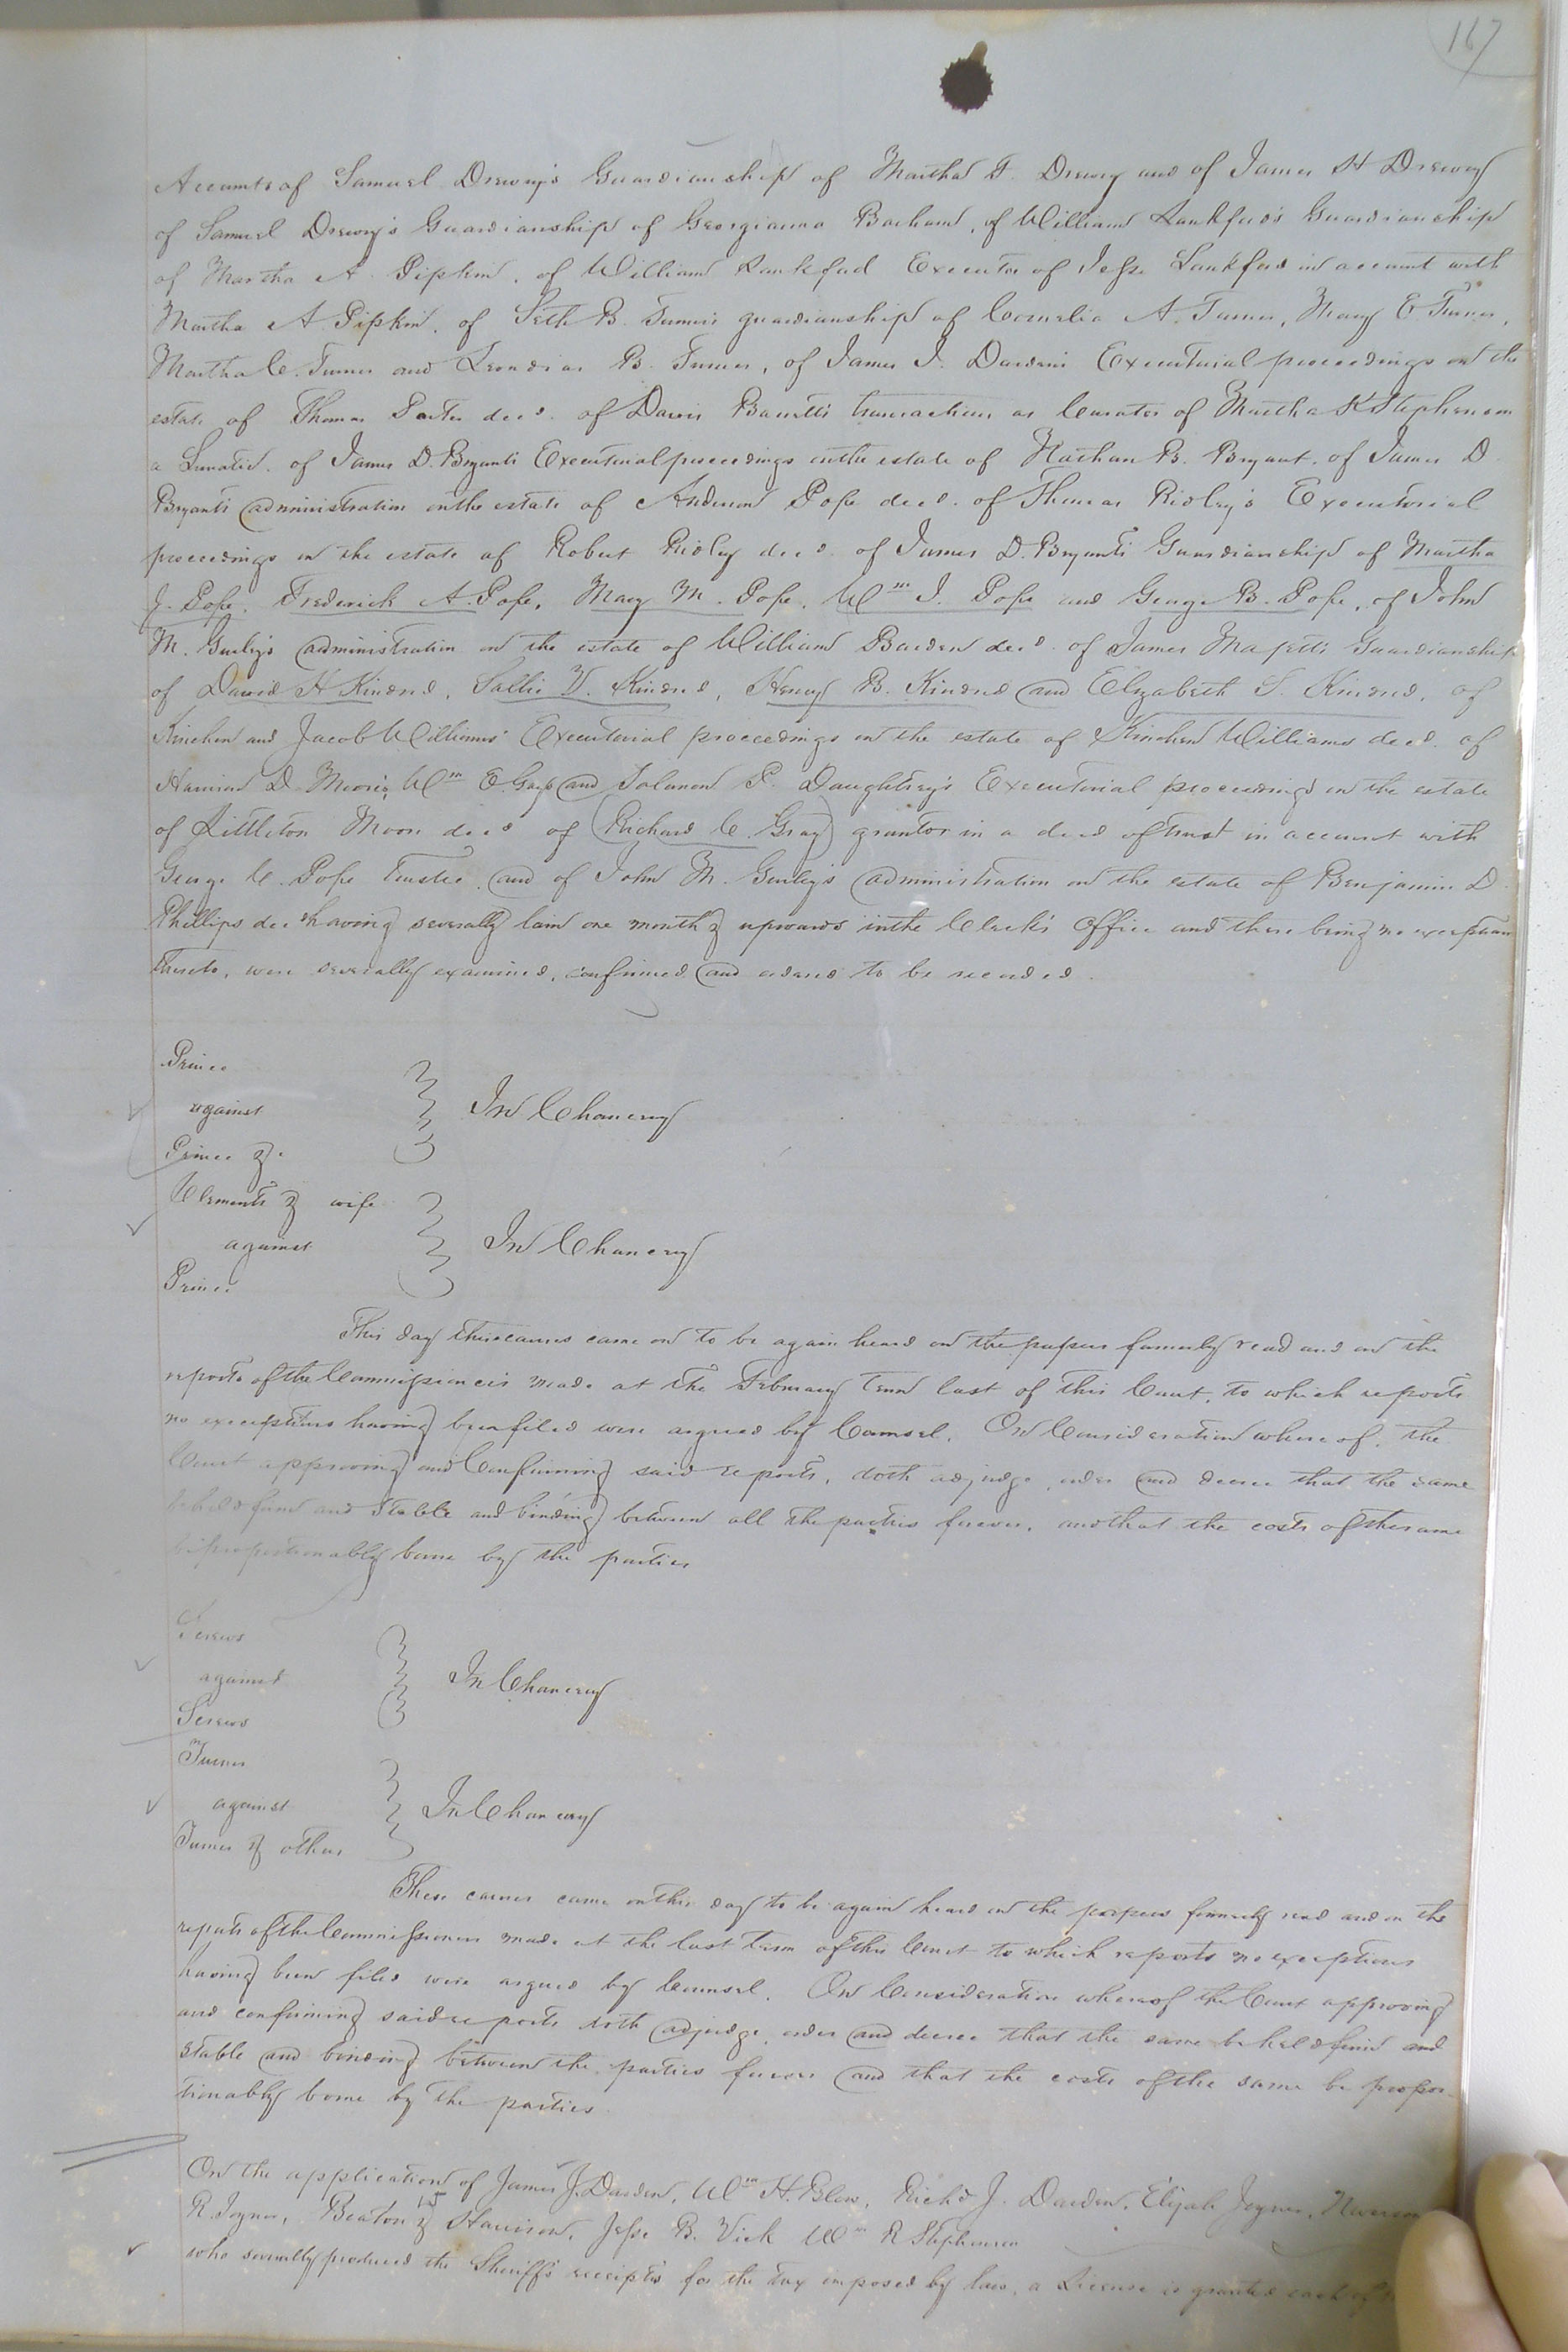 167
Accounts of Samuel Drewry's Guardianship of Martha F. Drewry and of James H Drewry
of Samuel Drewry's Guardianship of Georgianna Barham, of William Lankford's Guardianship
of Martha A. Pipkin, of William Lankford Executor of Jesse Lankford in account with
Martha A Pipkin, of Seth B. Turner's guardianship of Cornelia A. Turner, Mary E Turner,
Martha C. Turner and Leondias B. Turner, of James J. Darden's Executorial proceedings on the
estate of Thomas Porter decd. of Davis Barrett's transactions as Curator of Martha K Stephenson
a Lunatic. of James D. Bryant's Executorial proceedings on the estate of Nathan B. Bryant, of James D
Bryant's administration on the estate of Anderson Pope decd. of Thomas Ridley's Executorial
proceedings on the estate of Robert Ridley decd. of James D. Bryant's Guardianship of Martha
J. Pope, Frederick A. Pope, Mary M. Pope, Wm J. Pope and George B. Pope, of John
M. Gurley's administration on the estate of William Barden decd. of James Magett's Guardianship
of David H Kindred, Sallie V. Kindred, Henry B. Kindred and Elizabeth S. Kindred, of
Kinchen and Jacob Williams' Executorial proceedings on the estate of Kinchen Williams decd. of
Harrison D. Moore's, Wm E. Gay's and Solomon P. Daughtrey's Executorial proceedings on the estate
of Littleton Moore decd of (Richard C. Gray) grantor in a deed of trust in account with
George C. Pope Trustee, and of John M. Gurley's administration on the estate of Benjamin D.
Phillips decd having severally lain one month & upwards in the Clerk's Office and there being no exceptions
thereto, were severally examined, confirmed and ordered to be recorded.
Prince
against
Prince &c
In Chancery
Clements & wife
against
Prince
In Chancery
This day these causes came on to be again heard on the papers formerly read and on the
reports of the Commissioners made at the February Term last of this Court, to which reports
no exceptions having been filed were argued by Counsel. On Consideration whereof, the
Court approving and Confirming said reports, doth adjudge, order and decree that the same
be held firm and stable and binding between all the parties forever, and that the costs of the same
be proportionably borne by the parties
Screws
against
Screws
In Chancery
Turner
against
Turner & others
In Chancery
These causes came on this day to be again heard on the papers formerly read and on the
reports of the Commissioners made at the last term of this Court to which reports no exceptions
having been filed were argued by Counsel. On Consideration whereof the Court approving
and confirming said reports doth adjudge, order and decree that the same be held firm and
stable and binding between the parties forever and that the costs of the same be propor-
tionably borne by the parties.
On the application of James J. Darden, Wm H. Blow, Richd J. Darden, Elijah Joyner,
R. Joyner, Beaton & Harrison, Jesse B. Vick Wm R Stephenson
who severally produced the Sheriff's receipts for the tax imposed by law, a License is granted each of